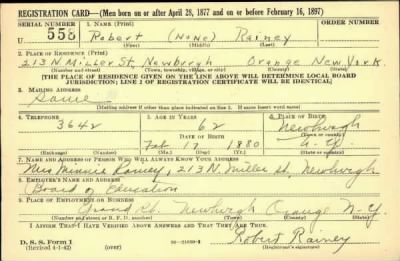 REGISTRATION CARD—(Men born on or after April 28, 1877 and on or before February 16, 1897)
SERIAL NUMBER
1. NAME (Print)
U 558
Robert (None) Rainey
(First) (Middle) (Last)
2. PLACE OF RESIDENCE (Print)
213 N Miller St, Newburgh Orange New York.
(Number and street) (Town, township, village, or city) (County) (State)
[THE PLACE OF RESIDENCE GIVEN ON THE LINE ABOVE WILL DETERMINE LOCAL BOARD
JURISDICTION; LINE 2 OF REGISTRATION CERTIFICATE WILL BE IDENTICAL]
3. MAILING ADDRESS
Same
[Mailing address if other than place indicated on line 2. If same insert word same]
4. TELEPHONE
5. AGE IN YEARS
6. PLACE OF BIRTH
3642
62
Newburgh
DATE OF BIRTH
(Town or county)
Fat 17 1880
N.Y.
(Exchange) (Number)
(Mo.) (Day) (Yr.)
(State or country)
7. NAME AND ADDRESS OF PERSON WHO WILL ALWAYS KNOW YOUR ADDRESS
Mrs Minnie Rainey, 213 N. Miller St, Newburgh
8. EMPLOYER'S NAME AND ADDRESS
Board of Education
9. PLACE OF EMPLOYMENT OR BUSINESS
Grand St. Newburgh Orange N-Y.
(Number and street or R. F. D. number) (Town) (County) (State)
I AFFIRM THAT I HAVE VERIFIED ABOVE ANSWERS AND THAT THEY ARE TRUE.
D. S. S. Form 1
(Revised 4-1-42) (over)
Robert Rainey
(Registrant's signature)